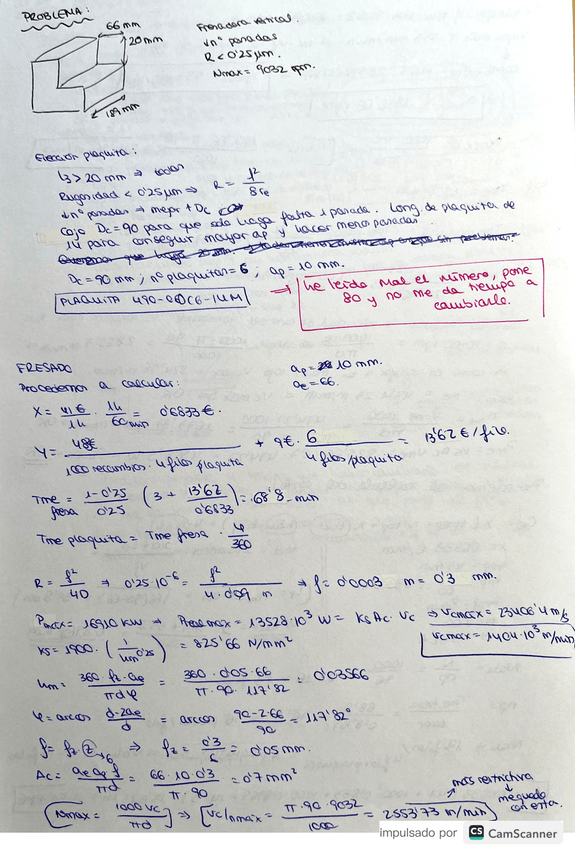 PROBLEMA:
66 mm
20 mm
189 mm
Fresadora vertical.
↓nº pasadas
R < 0'25 µm.
Nmax = 9032 rpm.
Elección plaquita:
l3 > 20 mm ⇒ todas
Rugosidad < 0'25 µm ⇒ R = f²/8rε
↓nº pasadas ⇒ mejor ↑Dc
Cojo Dc=90 para que solo haga falta 1 pasada. Long de plaquita de
14 para conseguir mayor ap y hacer menos pasadas.
Dc = 90 mm ; nº plaquitas = 6 ; ap = 10 mm.
PLAQUITA 490-090C6-14M
⇒ he leído mal el número, pone
80 y no me da tiempo a
cambiarlo.
FRESADO
ap = 10 mm.
ae = 66.
Procedemos a calcular:
X = 41€/1h · 1h/60min = 0'6833 €.
Y = 48€/(1000 recambios · 4 filos/plaquita) + 9€ · 6/(4 filos/plaquita) = 13'62 €/filo.
Tme fresa = (1-0'25)/0'25 (3 + 13'62/0'6833) = 68'8 min
Tme plaquita = Tme fresa · φ/360
R = f²/4D ⇒ 0'25·10⁻⁶ = f²/(4·0'09) m ⇒ f = 0'0003 m = 0'3 mm.
Pmax = 16910 kW ⇒ Prealmax = 13528·10³ W = ks Ac · Vc ⇒ Vcmax = 23406'4 m/s
Vcmax = 1404·10³ m/min
ks = 1900 · (1/hm^0'25) = 825'66 N/mm²
hm = 360·fz·ae/πdφ = 360·0'05·66/(π·90·117'82) = 0'03566
φ = arcos (d-2ae)/d = arcos (90-2·66)/90 = 117'82°
f = fz z→6 ⇒ fz = 0'3/6 = 0'05 mm.
Ac = ae ap f/πd = 66·10·0'3/(π·90) = 0'7 mm²
más restrictiva
↓ me quedo
con esta.
Nmax = 1000 Vc/πd ⇒ Vc/nmax = π·90·9032/1000 = 2553'73 m/min
impulsado por CS CamScanner